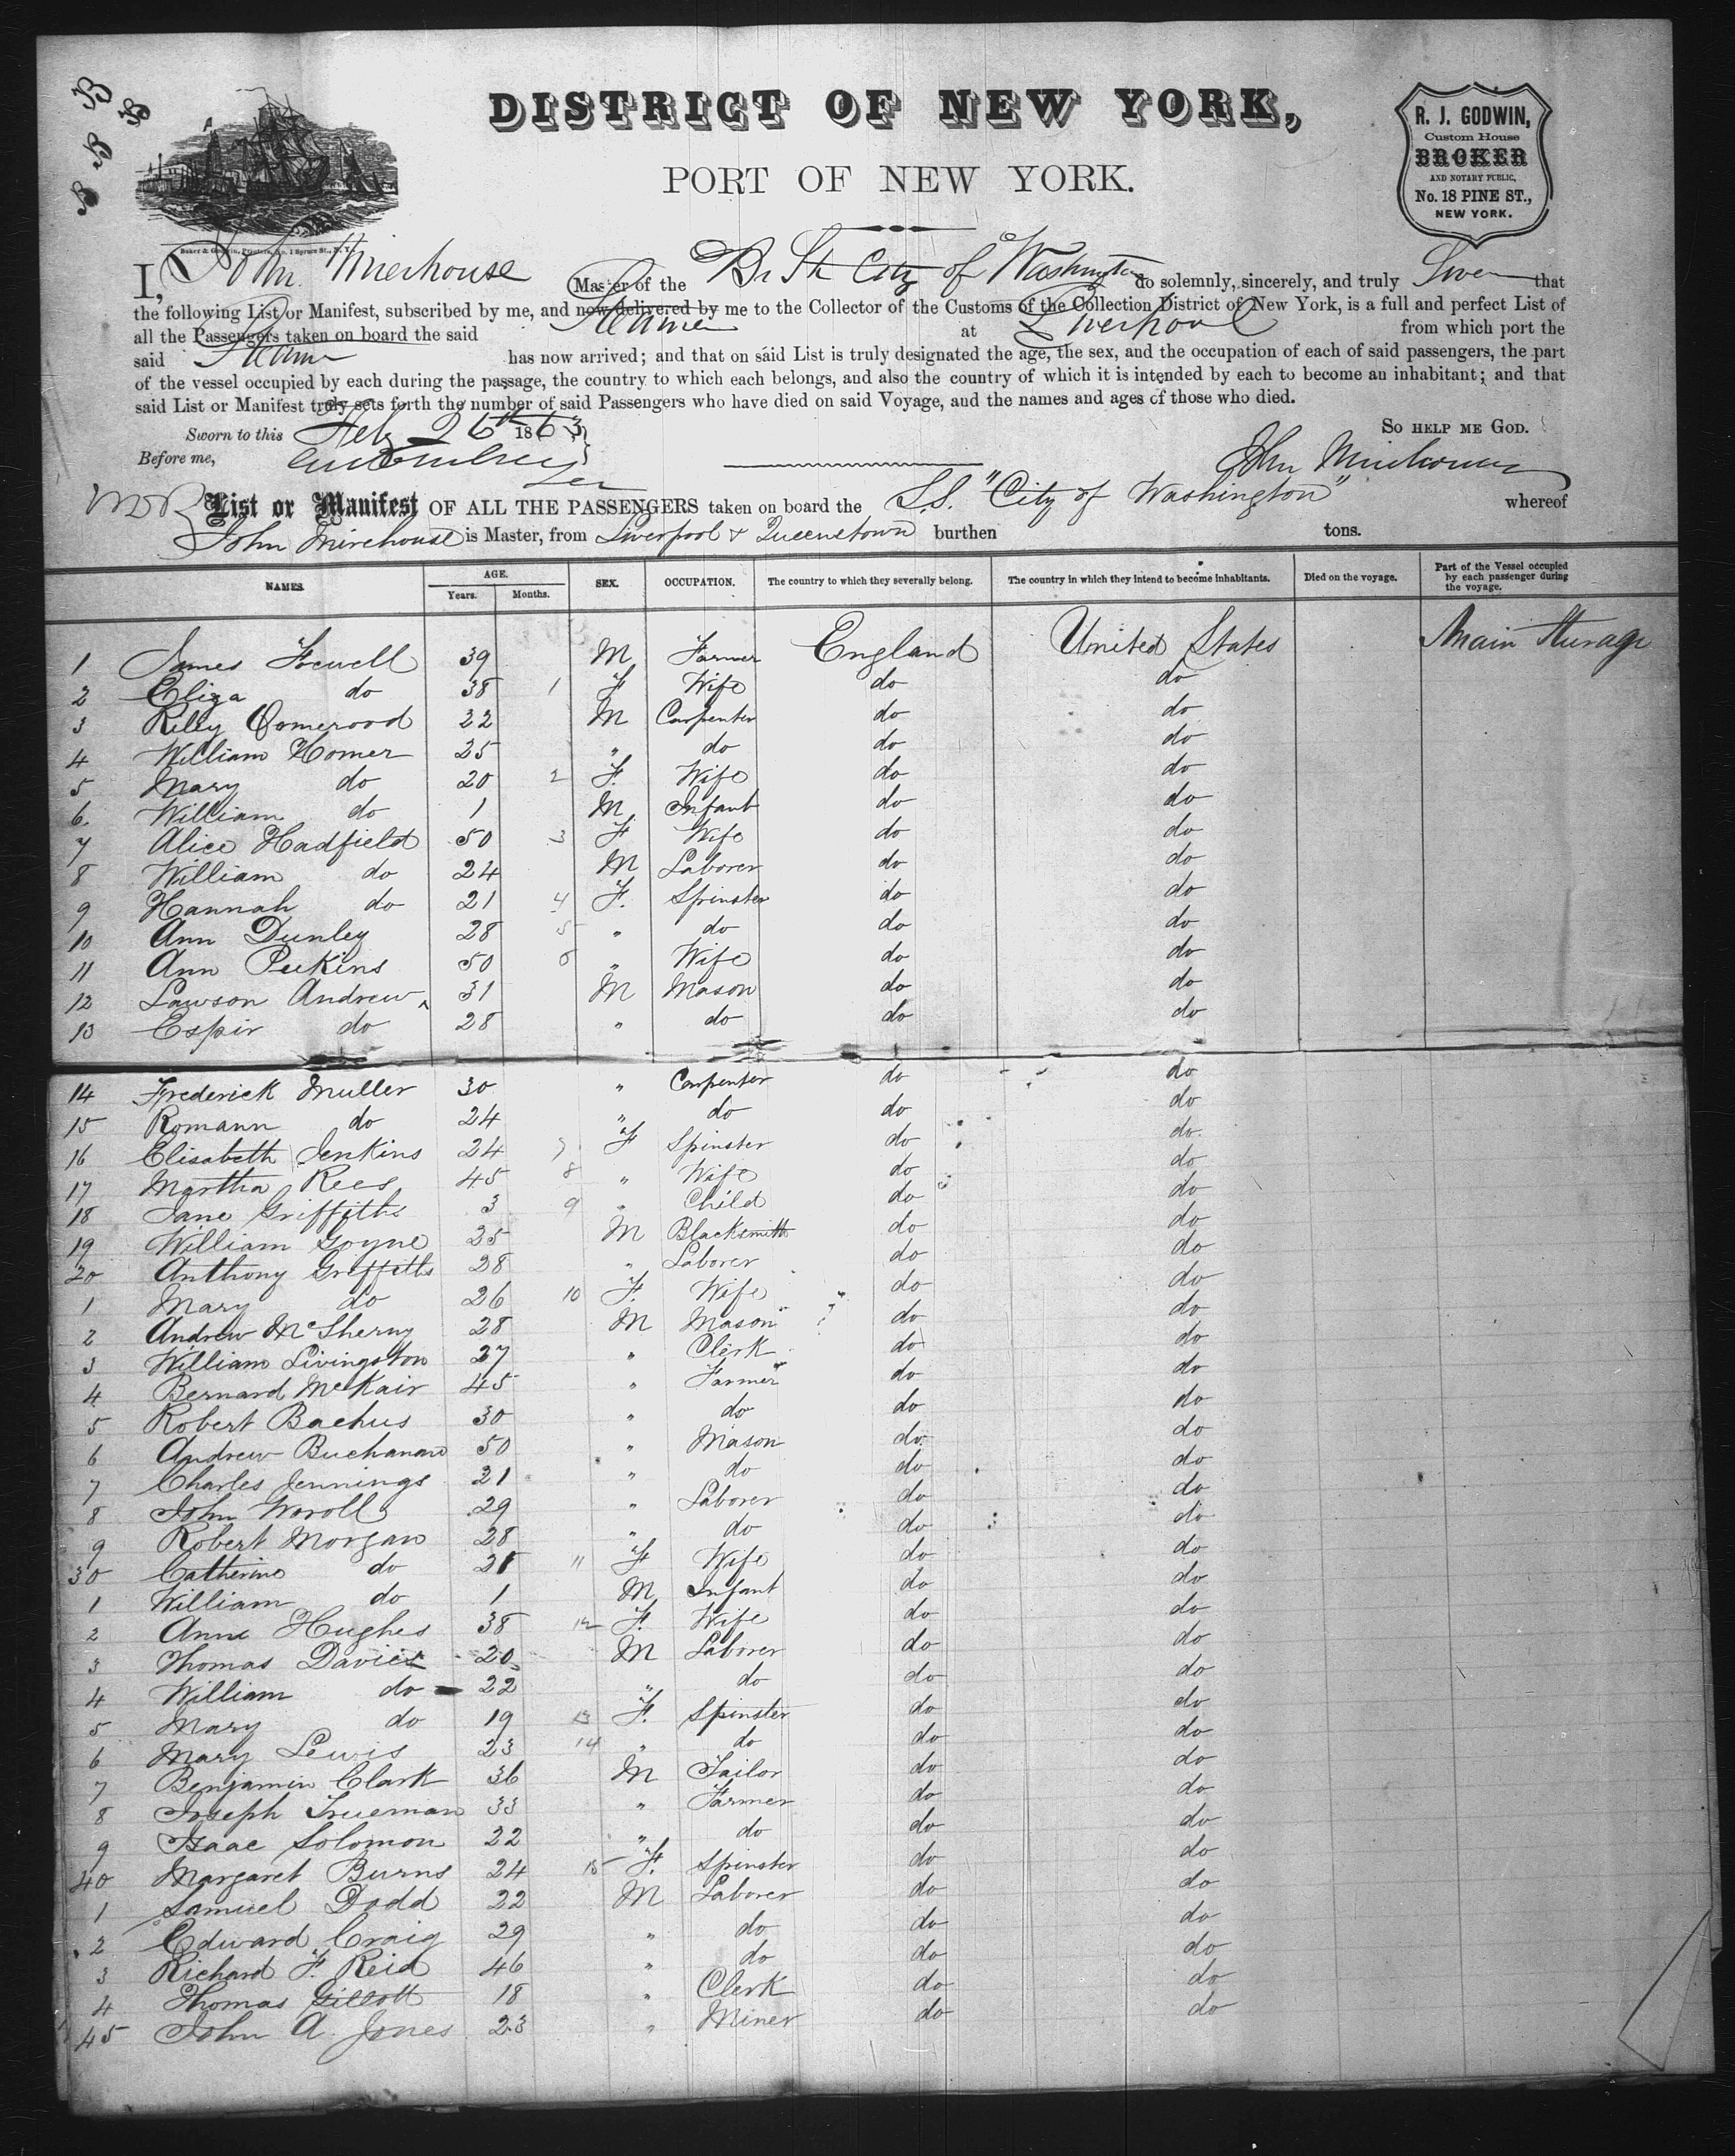 B B B B
DISTRICT OF NEW YORK,
PORT OF NEW YORK.
R. J. GODWIN,
Custom House
BROKER
AND NOTARY PUBLIC,
No. 18 PINE ST.,
NEW YORK.
Baker & Godwin, Printers, No. 1 Spruce St., N. Y.
I, John Mirehouse Master of the Br St City of Washington do solemnly, sincerely, and truly Swear that
the following List or Manifest, subscribed by me, and now delivered by me to the Collector of the Customs of the Collection District of New York, is a full and perfect List of
all the Passengers taken on board the said Steamer at Liverpool from which port the
said Steamer has now arrived; and that on said List is truly designated the age, the sex, and the occupation of each of said passengers, the part
of the vessel occupied by each during the passage, the country to which each belongs, and also the country of which it is intended by each to become an inhabitant; and that
said List or Manifest truly sets forth the number of said Passengers who have died on said Voyage, and the names and ages of those who died.
Sworn to this Feb 26th 1863 SO HELP ME GOD.
Before me, John Mirehouse
List or Manifest OF ALL THE PASSENGERS taken on board the S.S. "City of Washington" whereof
John Mirehouse is Master, from Liverpool & Queenstown burthen tons.
NAMES. AGE. Years. Months. SEX. OCCUPATION. The country to which they severally belong. The country in which they intend to become inhabitants. Died on the voyage. Part of the Vessel occupied by each passenger during the voyage.
1 James Fewell 39 M Farmer England United States Main Sturage
2 Eliza do 38 1 F Wife do do
3 Rilly Omerood 22 M Carpenter do do
4 William Homer 25 " do do do
5 Mary do 20 2 F. Wife do do
6. William do 1 M Infant do do
7 Alice Hadfield 50 3 F Wife do do
8 William do 24 M Laborer do do
9 Hannah do 21 4 F. Spinster do do
10 Ann Dunley 28 5 " do do do
11 Ann Peekins 50 6 " Wife do do
12 Lawson Andrew 31 M Mason do do
13 Espir do 28 " do do do
14 Frederick Muller 30 " Carpenter do do
15 Romann do 24 " do do do
16 Elisabeth Jenkins 24 7 F Spinster do do
17 Martha Rees 45 8 " Wife do do
18 Jane Griffiths 3 9 " Child do do
19 William Goyne 25 M Blacksmith do do
20 Anthony Griffiths 28 " Laborer do do
1 Mary do 26 10 F. Wife do do
2 Andrew McSherny 28 M Mason do do
3 William Livingston 27 " Clerk do do
4 Bernard McKair 45 " Farmer do do
5 Robert Bachus 30 " do do do
6 Andrew Buchanan 50 " Mason do do
7 Charles Jennings 21 " do do do
8 John Woroll 29 " Laborer do do
9 Robert Morgan 28 " do do do
30 Catherine do 21 11 F Wife do do
1 William do 1 M Infant do do
2 Anne Hughes 38 12 F. Wife do do
3 Thomas Davies 20 M Laborer do do
4 William do 22 " do do do
5 Mary do 19 13 F. Spinster do do
6 Mary Lewis 23 14 " do do do
7 Benjamin Clark 36 M Tailor do do
8 Joseph Trueman 33 " Farmer do do
9 Isaac Solomon 22 " do do do
40 Margaret Burns 24 15 F. Spinster do do
1 Samuel Dodd 22 M Laborer do do
2 Edward Craig 29 " do do do
3 Richard F. Reid 46 " do do do
4 Thomas Gillott 18 " Clerk do do
45 John A. Jones 23 " Miner do do